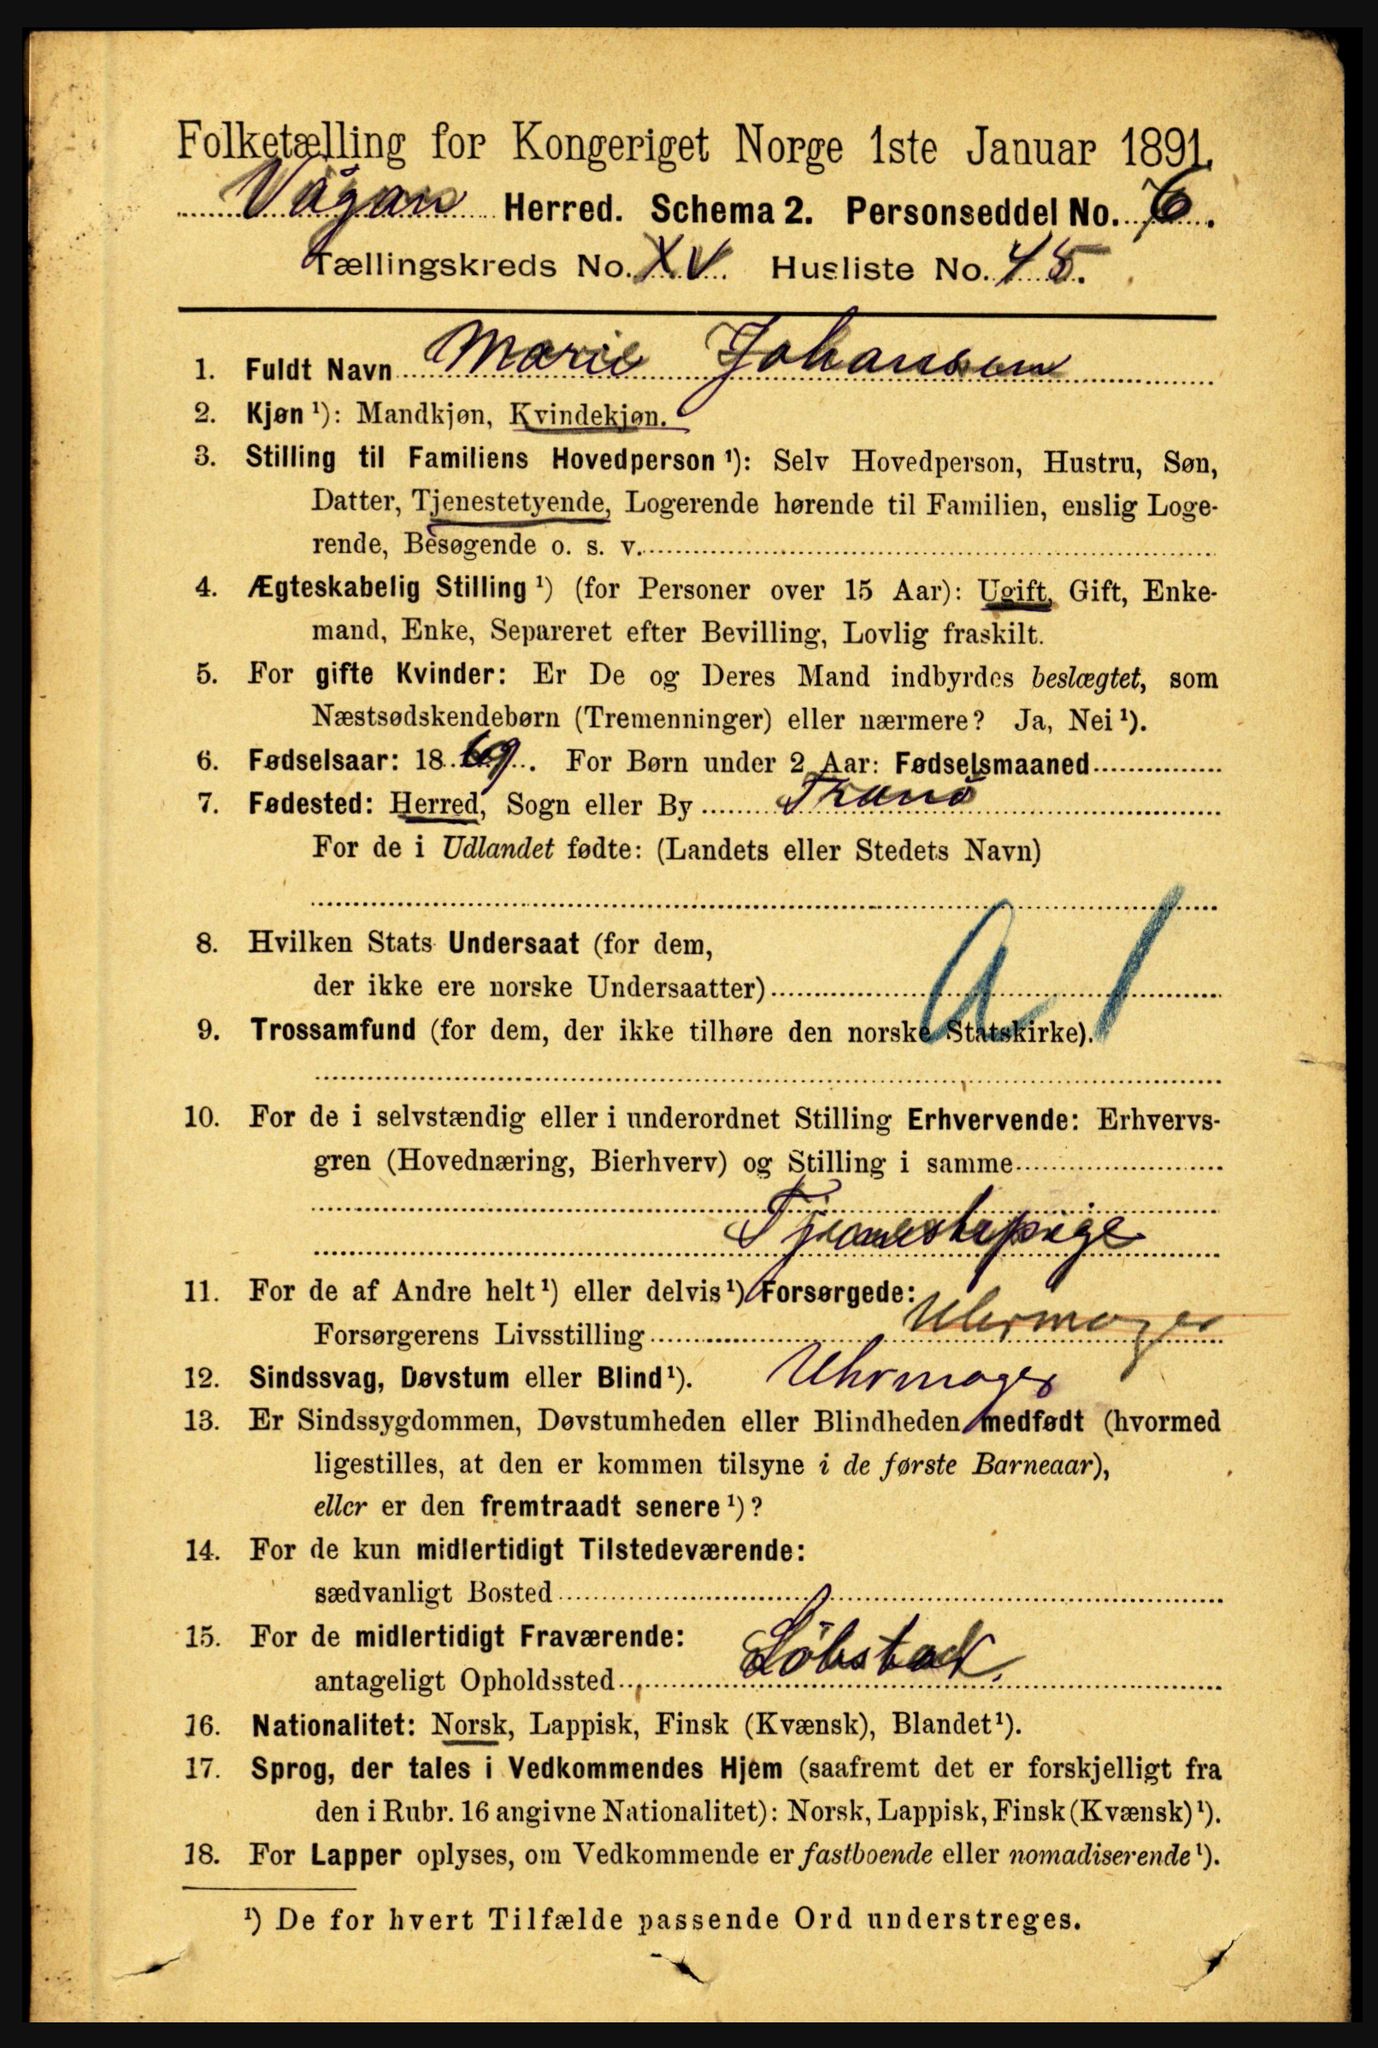 Folketælling for Kongeriget Norge 1ste Januar 1891.
Vågan Herred. Schema 2. Personseddel No. 6.
Tællingskreds No. XV. Husliste No. 45.
1. Fuldt Navn Marie Johansen
2. Kjøn ¹): Mandkjøn, Kvindekjøn.
3. Stilling til Familiens Hovedperson ¹): Selv Hovedperson, Hustru, Søn,
Datter, Tjenestetyende, Logerende hørende til Familien, enslig Loge-
rende, Besøgende o. s. v.
4. Ægteskabelig Stilling ¹) (for Personer over 15 Aar): Ugift, Gift, Enke-
mand, Enke, Separeret efter Bevilling, Lovlig fraskilt.
5. For gifte Kvinder: Er De og Deres Mand indbyrdes beslægtet, som
Næstsødskendebørn (Tremenninger) eller nærmere? Ja, Nei ¹).
6. Fødselsaar: 1869. For Børn under 2 Aar: Fødselsmaaned
7. Fødested: Herred, Sogn eller By Tranö
For de i Udlandet fødte: (Landets eller Stedets Navn)
8. Hvilken Stats Undersaat (for dem,
der ikke ere norske Undersaatter)
a 1
9. Trossamfund (for dem, der ikke tilhøre den norske Statskirke).
10. For de i selvstændig eller i underordnet Stilling Erhvervende: Erhvervs-
gren (Hovednæring, Bierhverv) og Stilling i samme
Tjenestepige
11. For de af Andre helt ¹) eller delvis ¹) Forsørgede:
Forsørgerens Livsstilling Uhrmager
12. Sindssvag, Døvstum eller Blind ¹). Uhrmager
13. Er Sindssygdommen, Døvstumheden eller Blindheden medfødt (hvormed
ligestilles, at den er kommen tilsyne i de første Barneaar),
eller er den fremtraadt senere ¹)?
14. For de kun midlertidigt Tilstedeværende:
sædvanligt Bosted
15. For de midlertidigt Fraværende:
antageligt Opholdssted Löbstad.
16. Nationalitet: Norsk, Lappisk, Finsk (Kvænsk), Blandet ¹).
17. Sprog, der tales i Vedkommendes Hjem (saafremt det er forskjelligt fra
den i Rubr. 16 angivne Nationalitet): Norsk, Lappisk, Finsk (Kvænsk) ¹).
18. For Lapper oplyses, om Vedkommende er fastboende eller nomadiserende ¹).
¹) De for hvert Tilfælde passende Ord understreges.